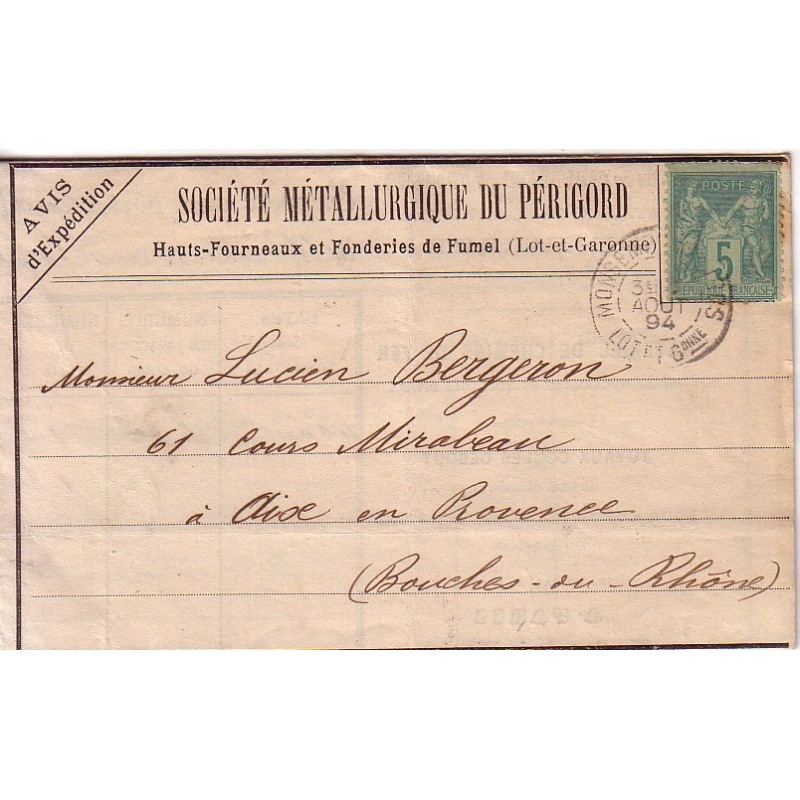 AVIS
d'Expédition
SOCIÉTÉ MÉTALLURGIQUE DU PÉRIGORD
Hauts-Fourneaux et Fonderies de Fumel (Lot-et-Garonne)
POSTE
5
REPUBLIQUE FRANÇAISE
3E
AOUT
94
LOT ET GONNE
Monsieur Lucien Bergeron
61 Cours Mirabeau
à Aix en Provence
(Bouches-du-Rhône)